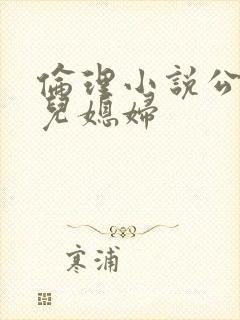 倫理小說公
兒媳婦
寒浦